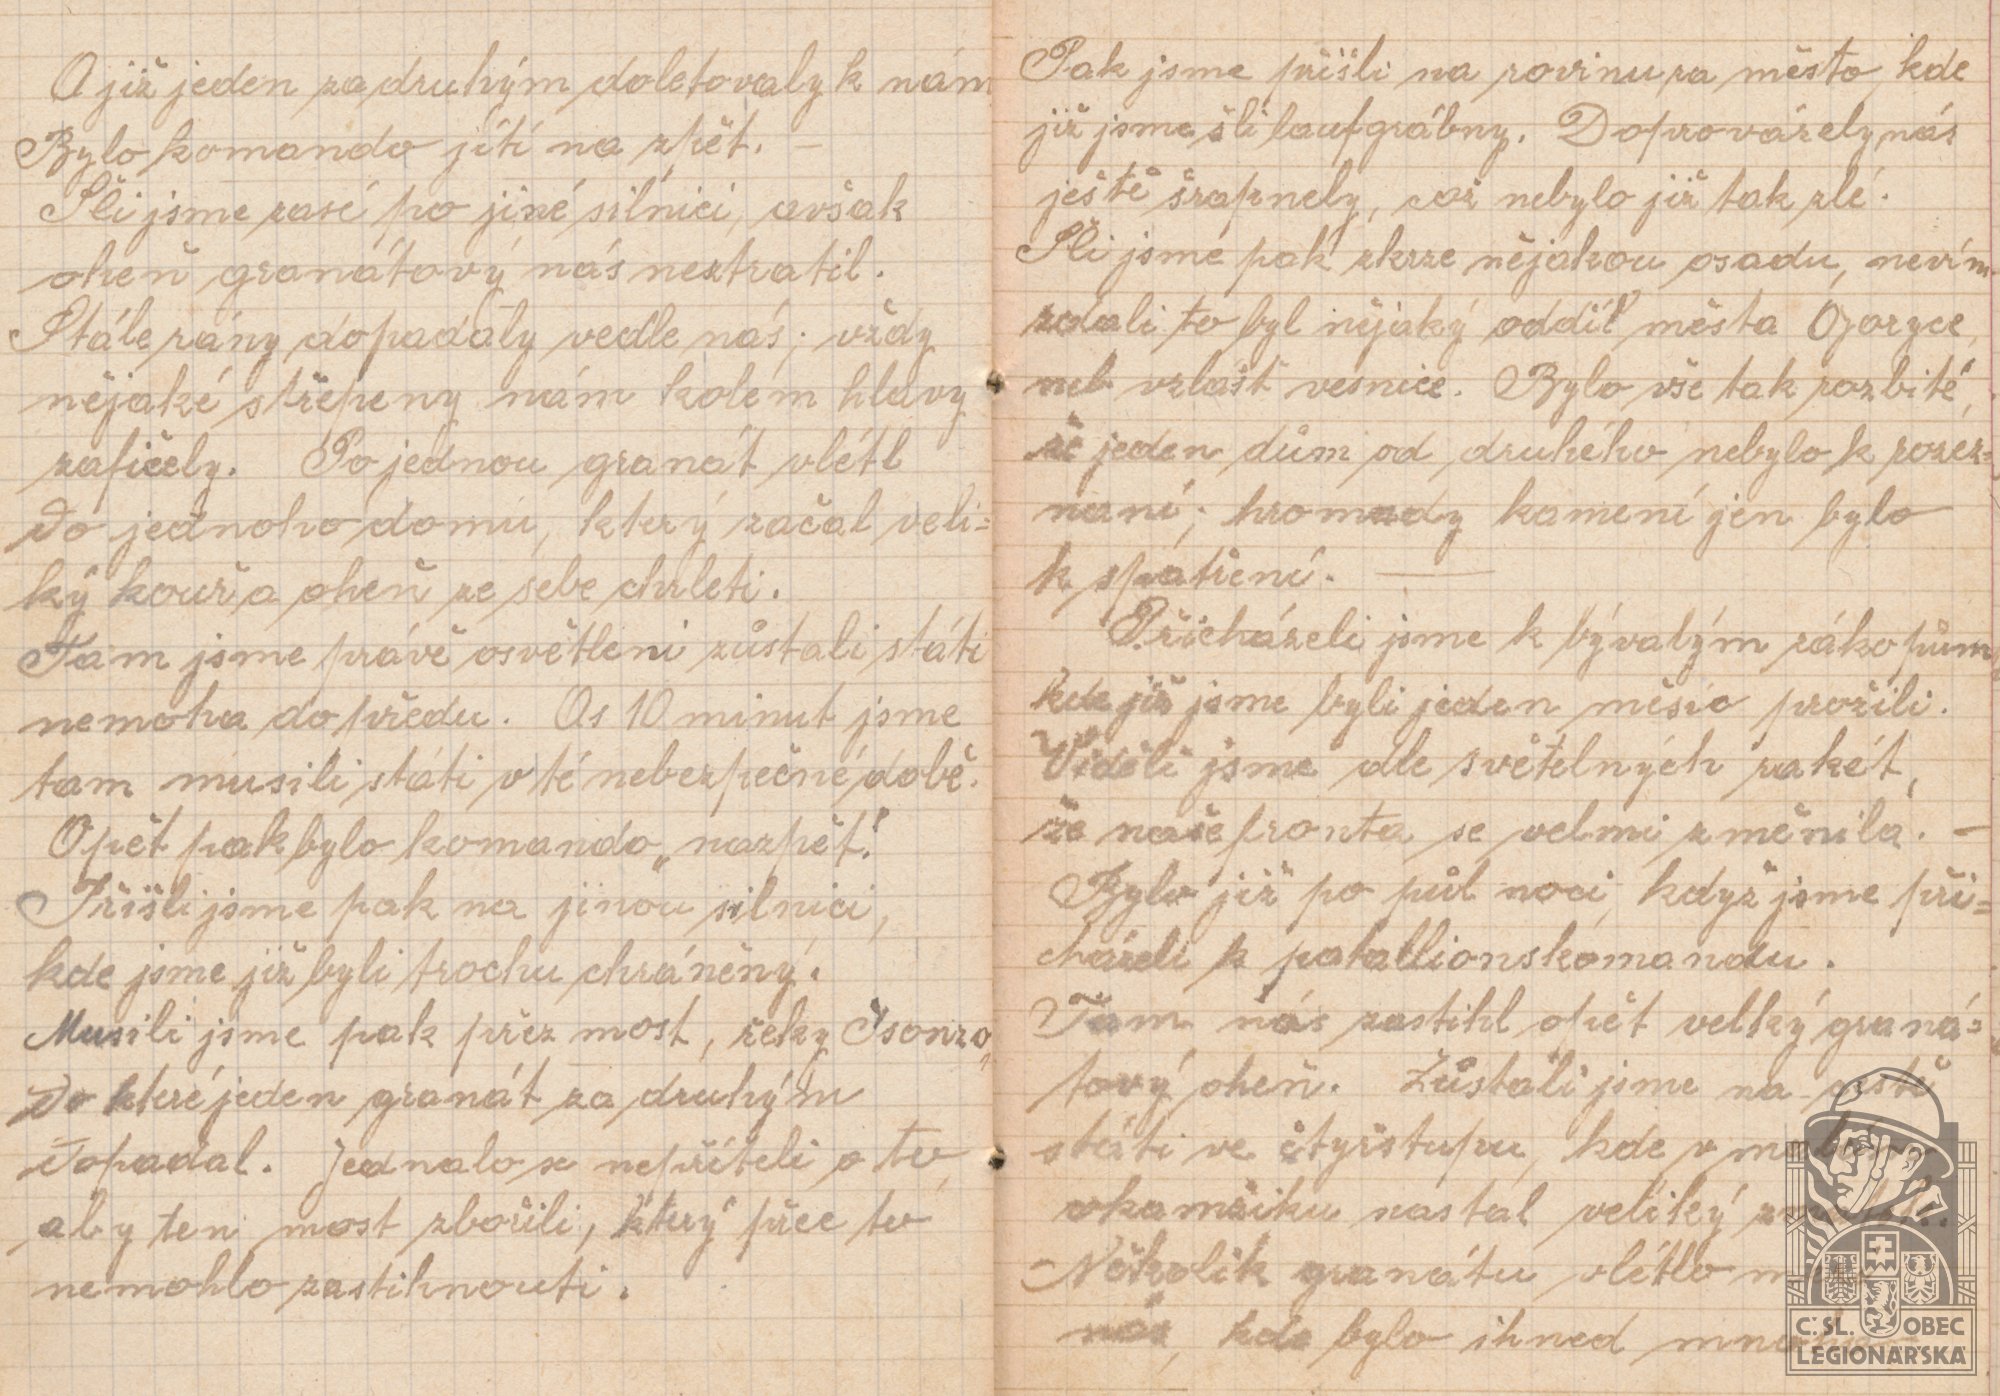 A již jeden za druhým doletovaly k nám
Bylo komando jíti na zpět. —
Šli jsme zasé po jiné silnici, avšak
oheň granátový nás neztratil.
Stále rány dopadaly vedle nás; vždy
nějaké střepeny nám kolem hlavy
zafičely. Po jednou granát vlétl
do jednoho domu, který začal veli=
ký kouř a oheň ze sebe chrleti.
Tam jsme právě osvětleni zůstali státi
nemoha do předu. As 10 minut jsme
tam musili státi v té nebezpečné době.
Opět pak bylo komando „nazpět."
Přišli jsme pak na jinou silnici,
kde jsme již byli trochu chráněný.
Musili jsme pak přez most, řeky Isonzo,
do které jeden granát za druhým
dopadal. Jednalo se nepříteli o to,
aby ten most zbořili, který přec to
nemohlo zastihnouti.
Pak jsme přišli na rovinu za město, kde
již jsme šli laufgrábny. Doprovázely nás
ještě šrapnely, což nebylo již tak zlé.
Šli jsme pak zkrze nějakou osadu, nevím
zdali to byl nějaký oddíl města Goryce,
neb vzlašt vesnice. Bylo vše tak rozbité,
že jeden dům od druhého nebylo k rozez=
nání; hromady kamení jen bylo
k spatření. —
Přicházeli jsme k bývalým zákopům
kde již jsme byli jeden měsíc prožili.
Viděli jsme dle světelných raket,
že naše fronta se velmi změnila. —
Bylo již po půl noci, když jsme při=
cházeli k batallionskomandu.
Tam nás zastihl opět velký graná=
tový oheň. Zůstali jsme na cestě
státi ve čtyřstupu, kde v
okamžiku nastal veliký
Několik granátu vlétlo
nás, kde bylo ihned
Č. SL. OBEC
LEGIONÁŘSKÁ